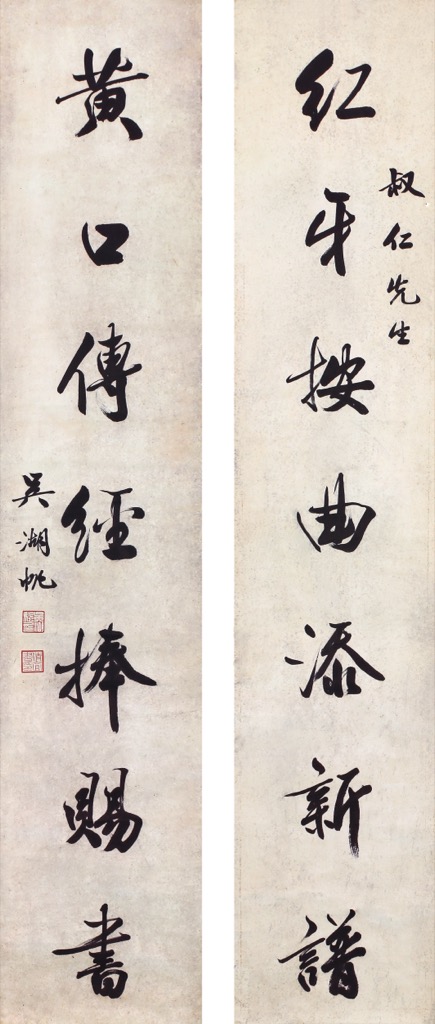 紅牙按曲添新譜
叔仁先生
黃口傳經捧賜書
吳湖帆